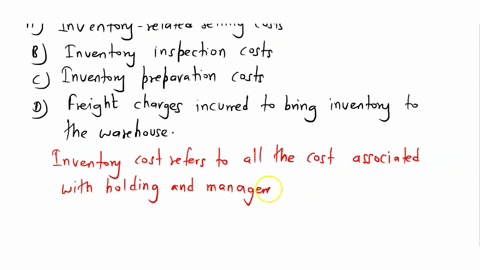 A) Inventory-related selling costs
B) Inventory inspection costs
C) Inventory preparation costs
D) Freight charges incurred to bring inventory to
the warehouse.
Inventory cost refers to all the cost associated
with holding and managem